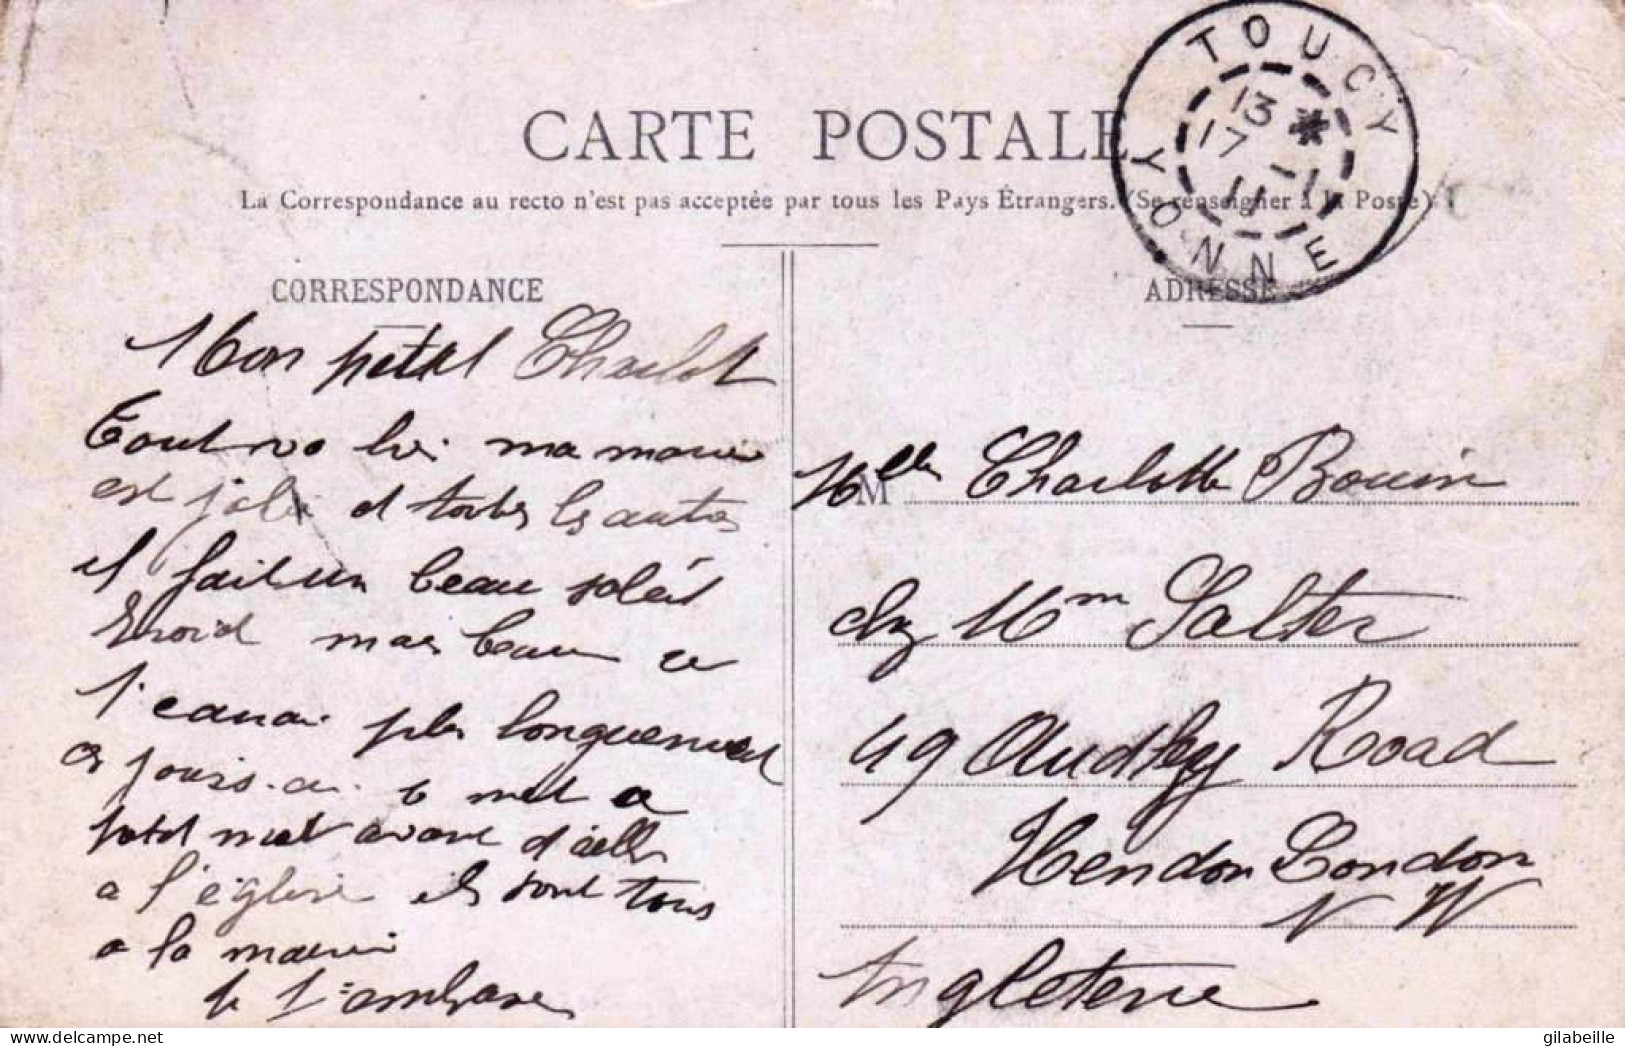 CARTE POSTALE
La Correspondance au recto n'est pas acceptée par tous les Pays Étrangers. (Se renseigner à la Poste)
TOUCY
13 *
17 -1
11
YONNE
CORRESPONDANCE
Mon petit Charlot
Tout va bien ma marié
est jolie et toutes les autres
il fait un beau soleil
froid mais beau
plus longuement
ces jours-ci
d'aller
a l'église ils sont tous
a la mairie
je t'embrasse
ADRESSE
M
Mlle Charlotte Bouin
chez Mm Salter
49 Audley Road
Hendon London
N W
Angleterre
gilabeille